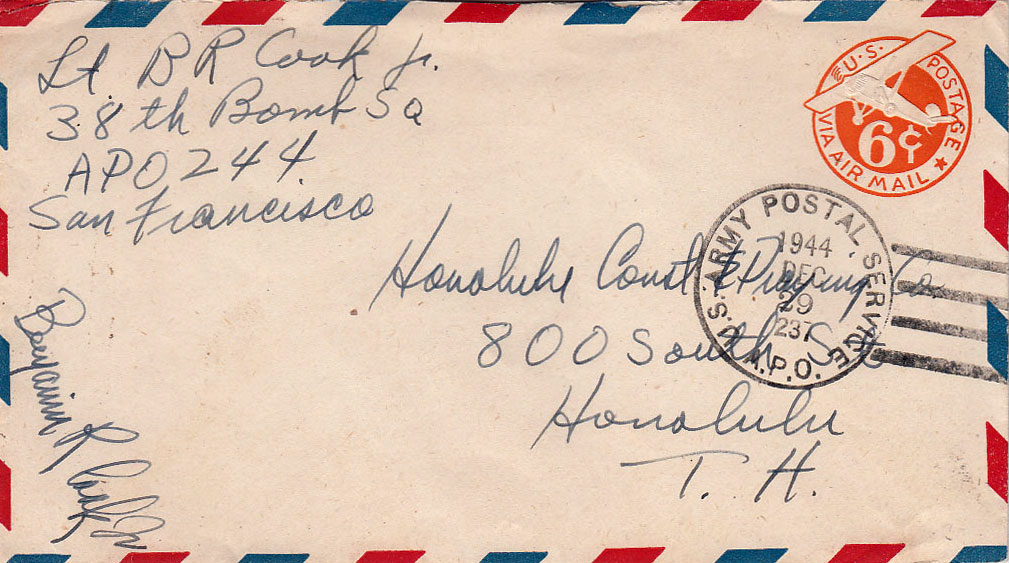 Lt. B R Cook Jr.
38th Bomb Sq
APO 244
San Francisco
U.S. POSTAGE
6¢
VIA AIR MAIL
U.S. ARMY POSTAL SERVICE
1944
DEC
29
237
A.P.O.
Honolulu Const & Draying Co
800 South St
Honolulu
T. H.
Benjamin R Cook Jr